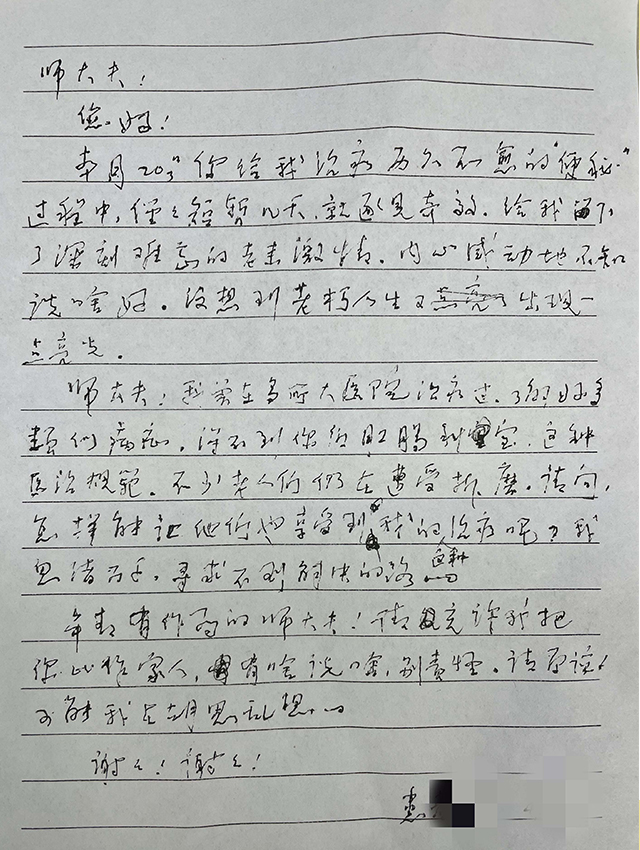 师大夫！
您好！
本月20日你给我治病历久不愈的“便秘”
过程中，仅仅短暂几天，就逐见奇效。给我留下
了深刻难忘的老来激情。内心感动地不知
说啥好。没想到老朽人生又出现一
点亮光。
师大夫！我曾在多所大医院治病过，了解好多
类似病症，得不到你 肛肠科室 这种
医治规范。不少老人们仍在遭受折磨。请问，
怎样能让他们也享受到我的这种治疗呢？我
思绪万千，寻求不到解决的路
年轻有作为的师大夫！请允许我把
你比作家人，有啥说啥，别责怪。请原谅！
可能我在胡思乱想。
谢谢！谢谢！
患